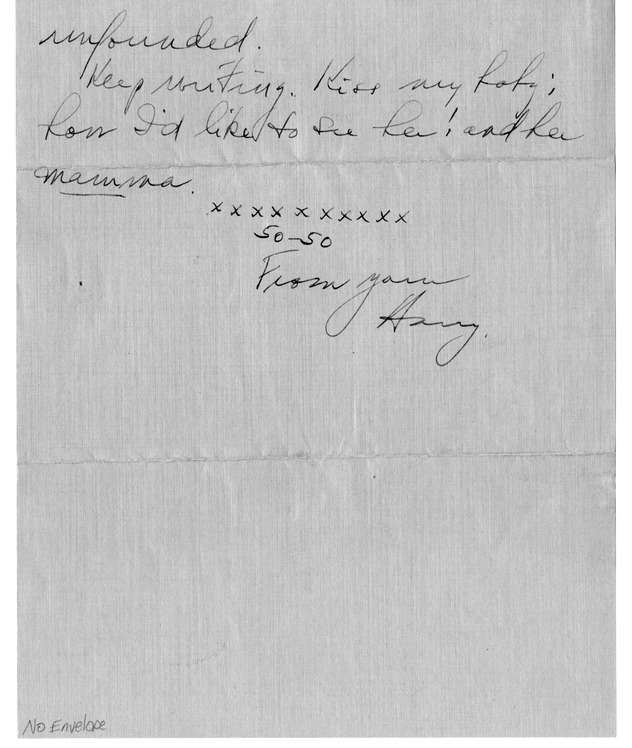 unfounded.
Keep writing. Kiss my baby;
how I'd like to see her! and her
mamma.
x x x x x x x x x x
50-50
From your
Harry.
No Envelope